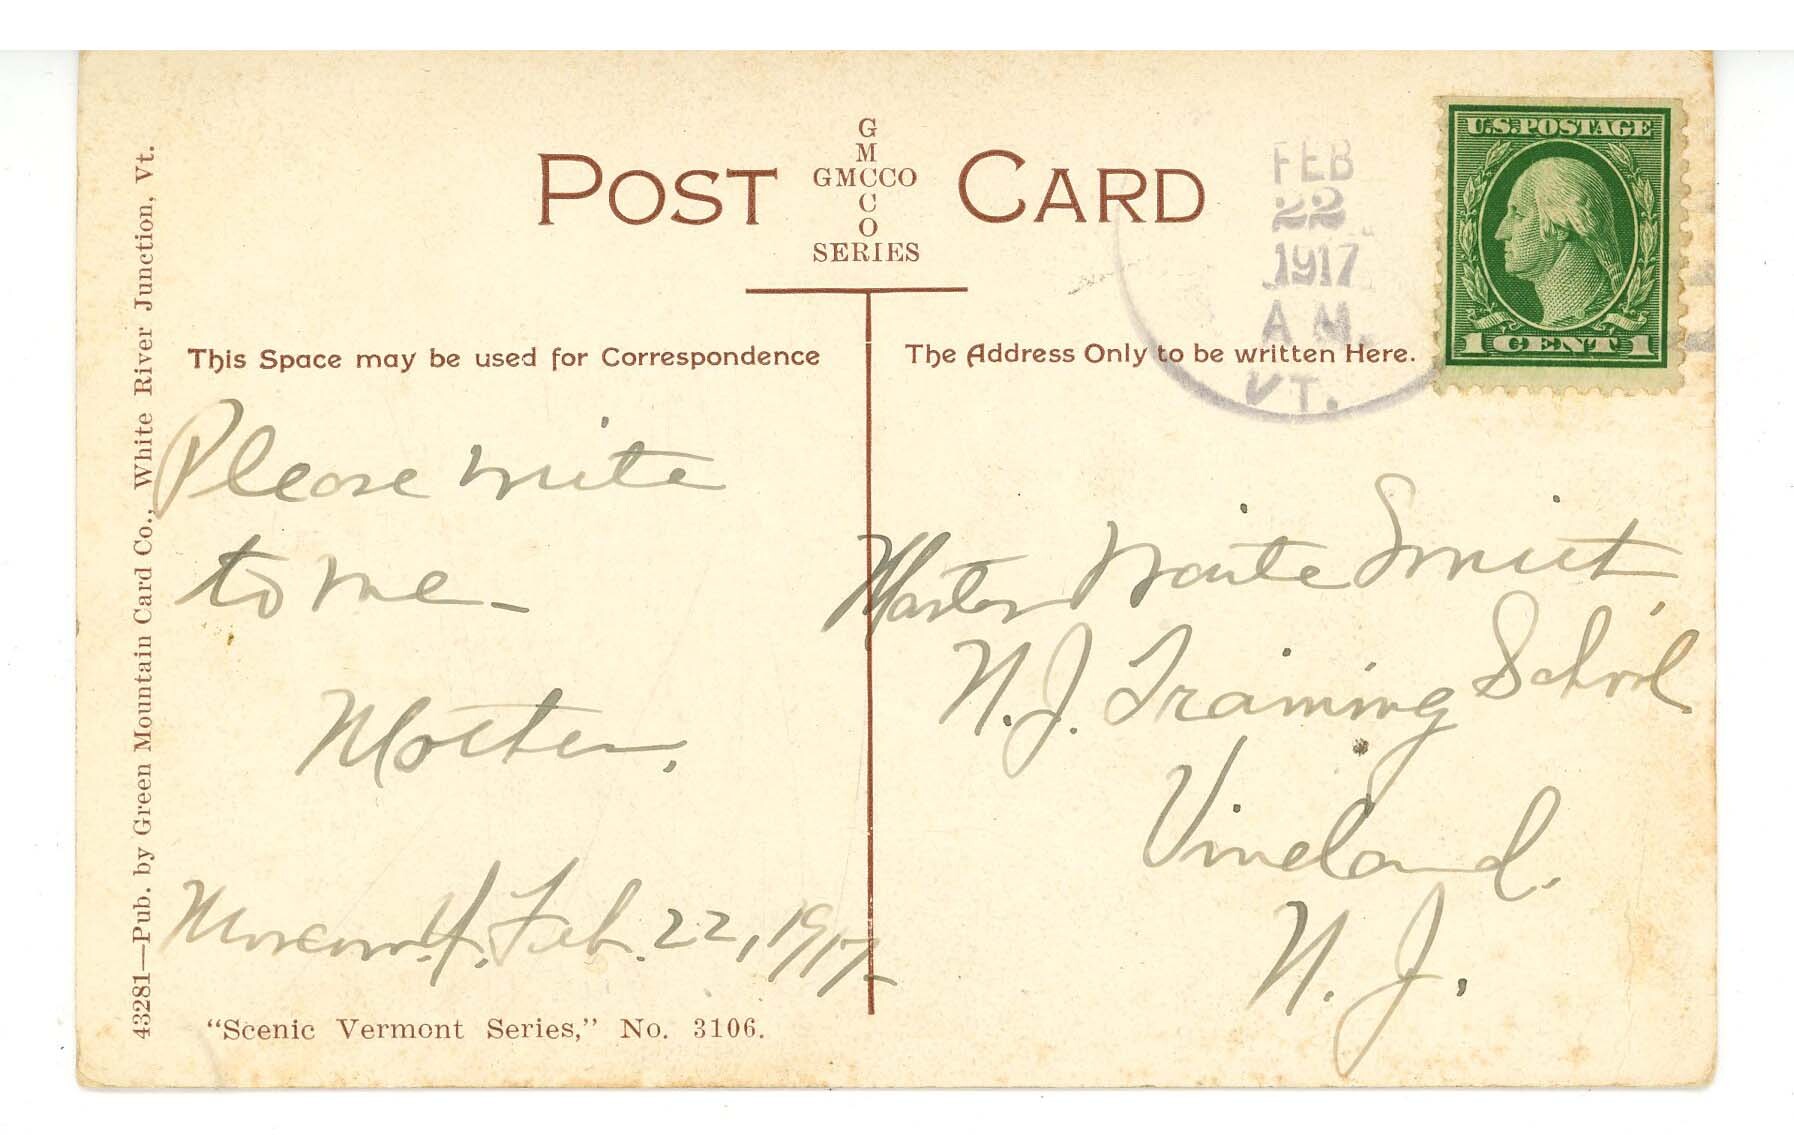 POST CARD
G
M
GMCCO
C
O
SERIES
This Space may be used for Correspondence
The Address Only to be written Here.
U.S. POSTAGE
1 CENT 1
FEB
22
1917
A.M.
VT.
Please write
to me—
Mother.
Feb. 22, 1917
Master Waite Smith,
N.J. Training School
Vineland.
N. J.
"Scenic Vermont Series," No. 3106.
43281—Pub. by Green Mountain Card Co., White River Junction, Vt.